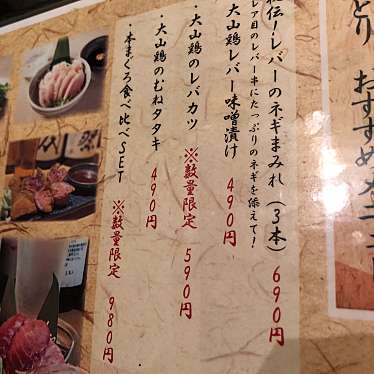 伝！レバーのネギまみれ（3本）690円
レア目のレバー串にたっぷりのネギを添えて！
・大山鶏レバー味噌漬け 490円
・大山鶏のレバカツ ※数量限定 590円
・大山鶏のむねタタキ 490円
・本まぐろ食べ比べSET ※数量限定 980円